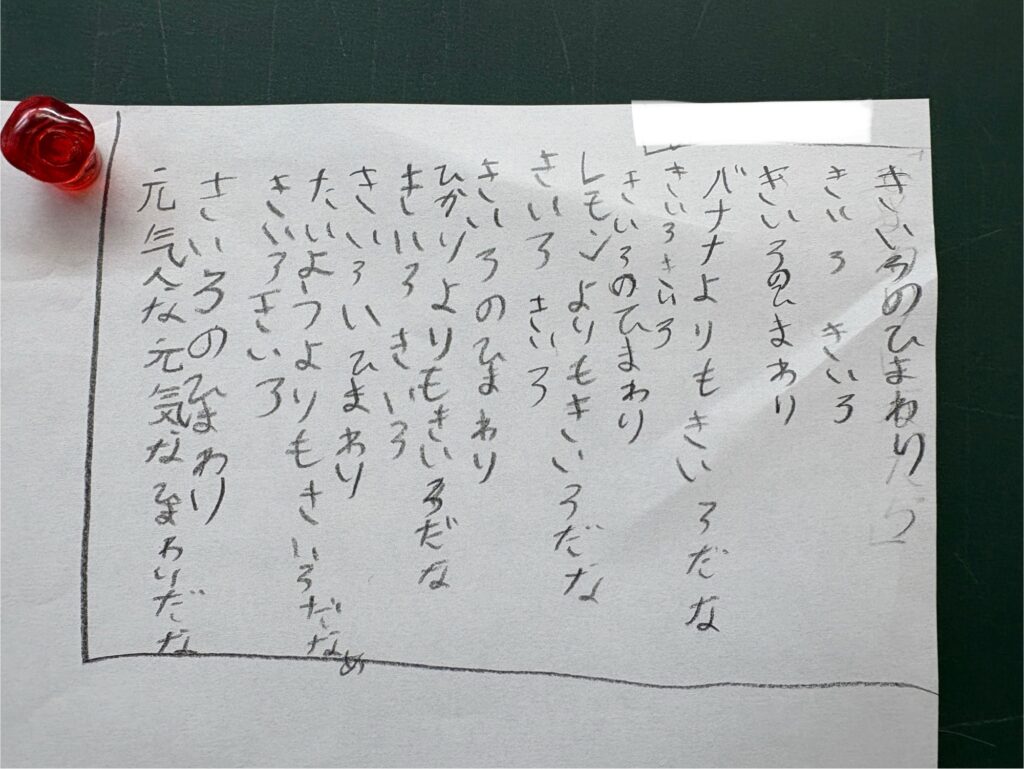 きいろのひまわり
きいろ きいろ
きいろのひまわり
バナナよりもきいろだな
きいろきいろ
きいろのひまわり
レモンよりもきいろだな
きいろ きいろ
きいろのひまわり
ひかりよりもきいろだな
きいろ きいろ
きいろいひまわり
たいようよりもきいろだな
きいろきいろ
きいろのひまわり
元気な元気なひまわりだな